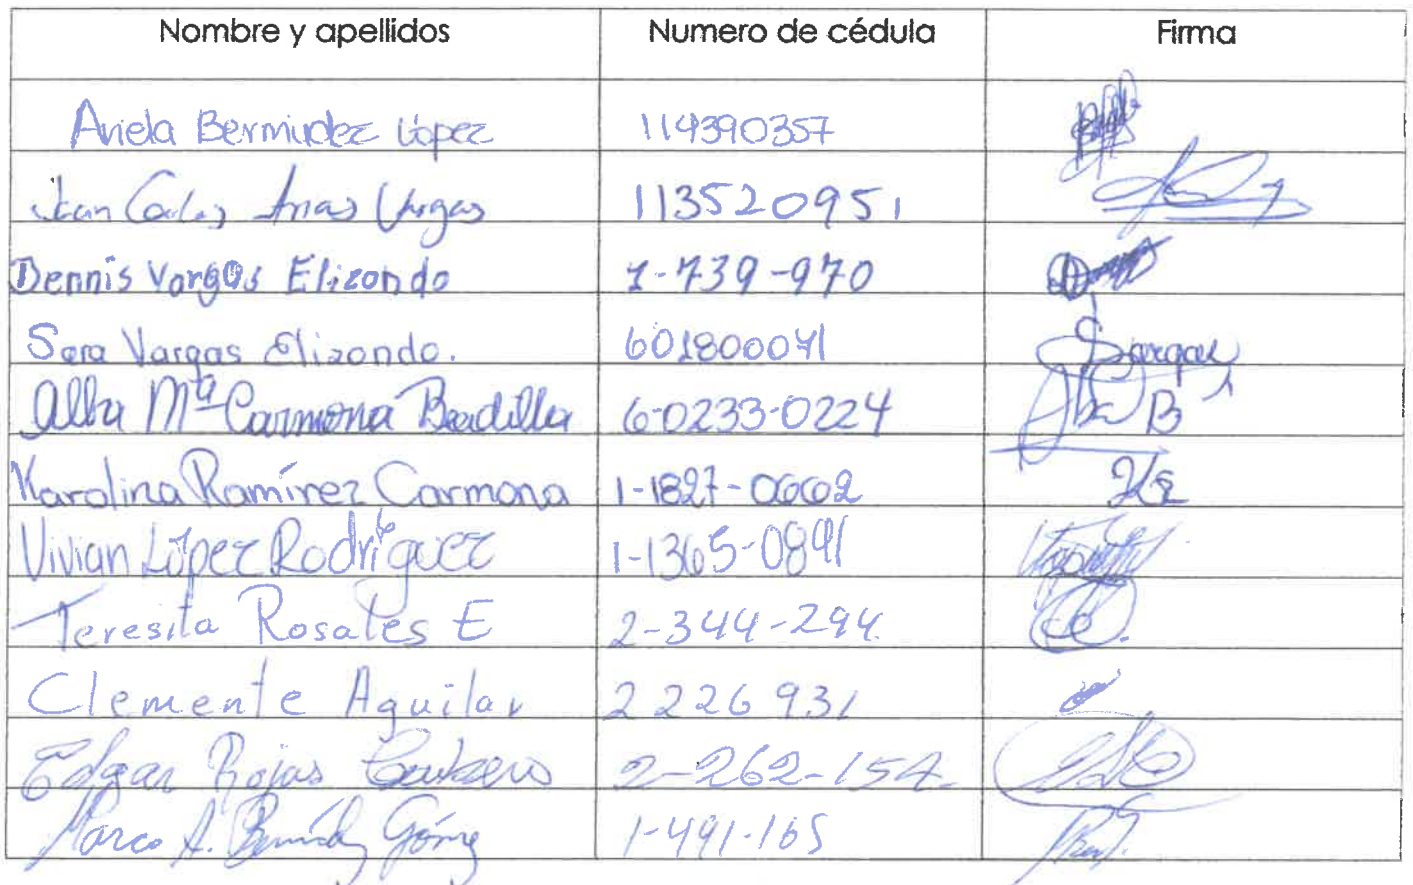 Nombre y apellidos Numero de cédula Firma
Ariela Bermudez López 114390357
Juan Carlos Arias Vargas 113520951
Dennis Vargas Elizondo 1-739-970
Sara Vargas Elizondo. 601800071 SVargas
Alba Mª Carmona Badilla 6-0233-0224
Karolina Ramírez Carmona 1-1827-0602
Vivian López Rodríguez 1-1365-0891
Teresita Rosales E 2-344-294.
Clemente Aguilar 2226931
Edgar Rojas 2-262-154.
Marco A. Bermúdez Gómez 1-491-165